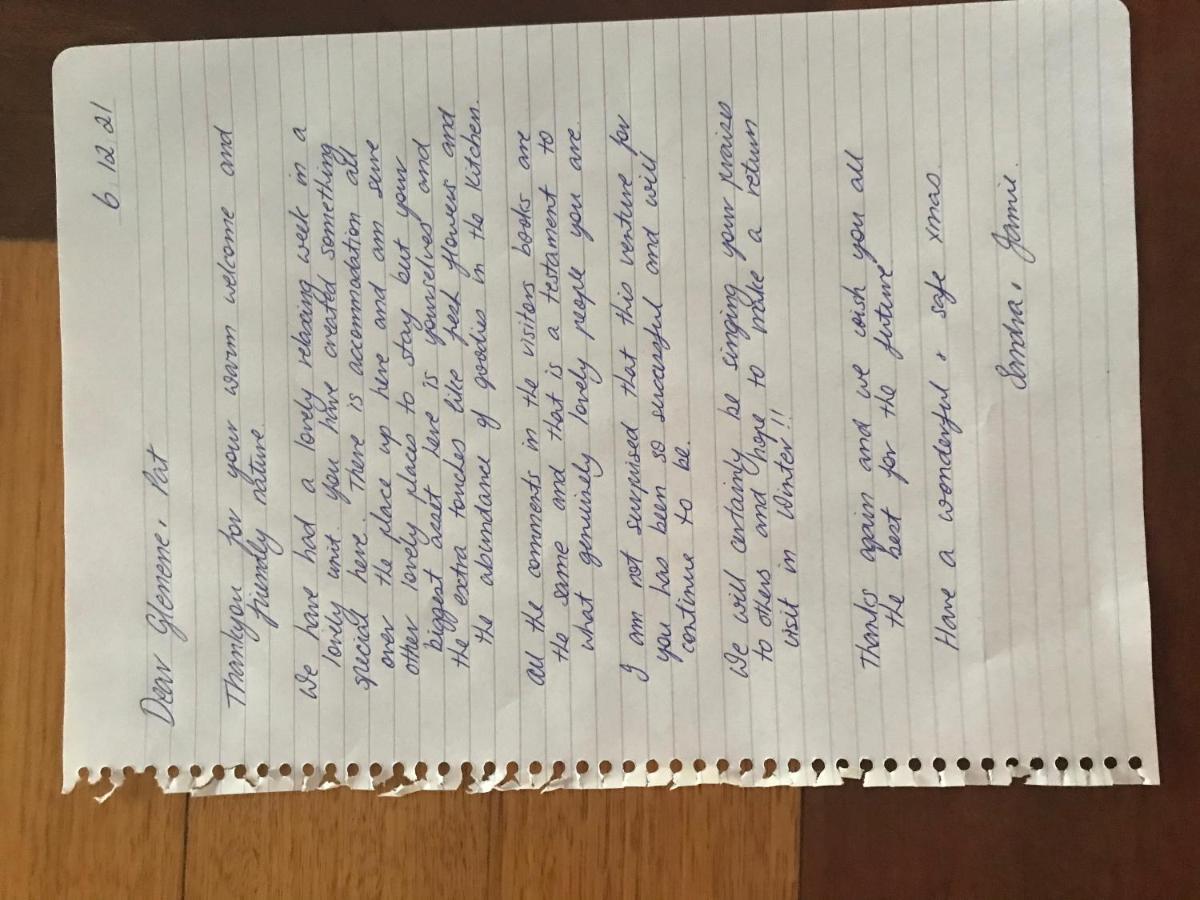 6.12.21
Dear Glenene & Pat
Thankyou for your warm welcome and
friendly nature
We have had a lovely relaxing week in a
lovely unit. you have created something
special here. There is accommodation all
over the place up here and am sure
other lovely places to stay but your
biggest asset here is yourselves and
the extra touches like fresh flowers and
the abundance of goodies in the kitchen.
all the comments in the visitors books are
the same and that is a testament to
what genuinely lovely people you are.
I am not surprised that this venture for
you has been so successful and will
continue to be.
We will certainly be singing your praises
to others and hope to make a return
visit in Winter!!
Thanks again and we wish you all
the best for the future
Have a wonderful & safe xmas
Sandra &